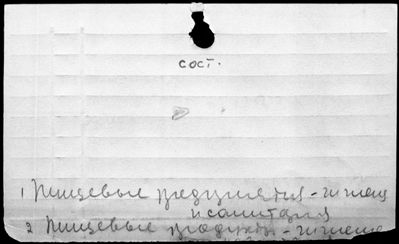 сост.
1 Пищевые предприятия - гигиена
и санитария
2 Пищевые продукты - гигиена